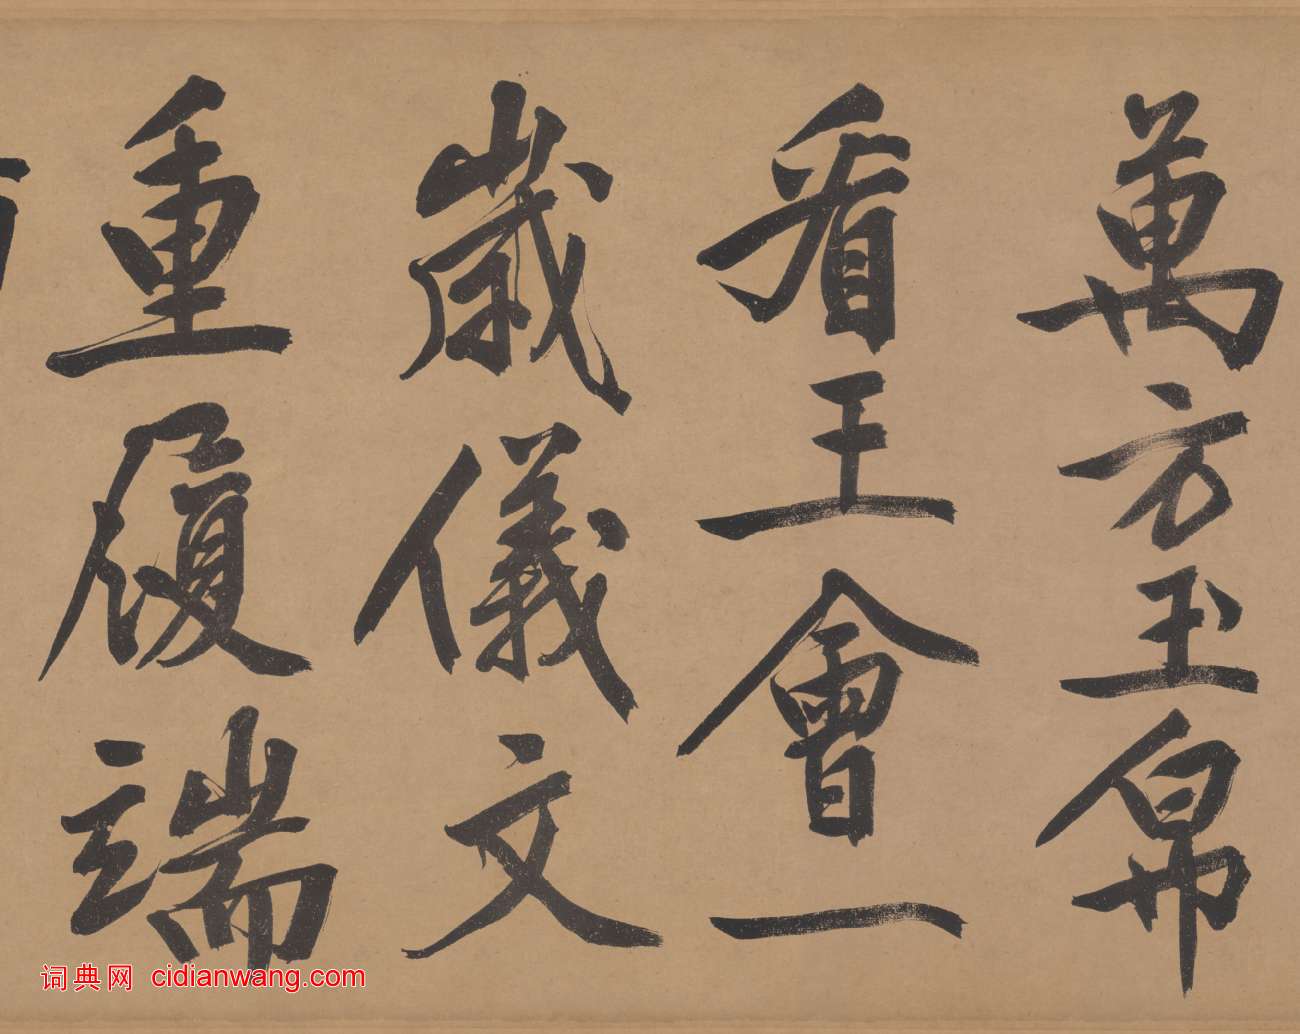 萬方玉帛
看王會一
歲儀文
重履端
词典网 cidianwang.com